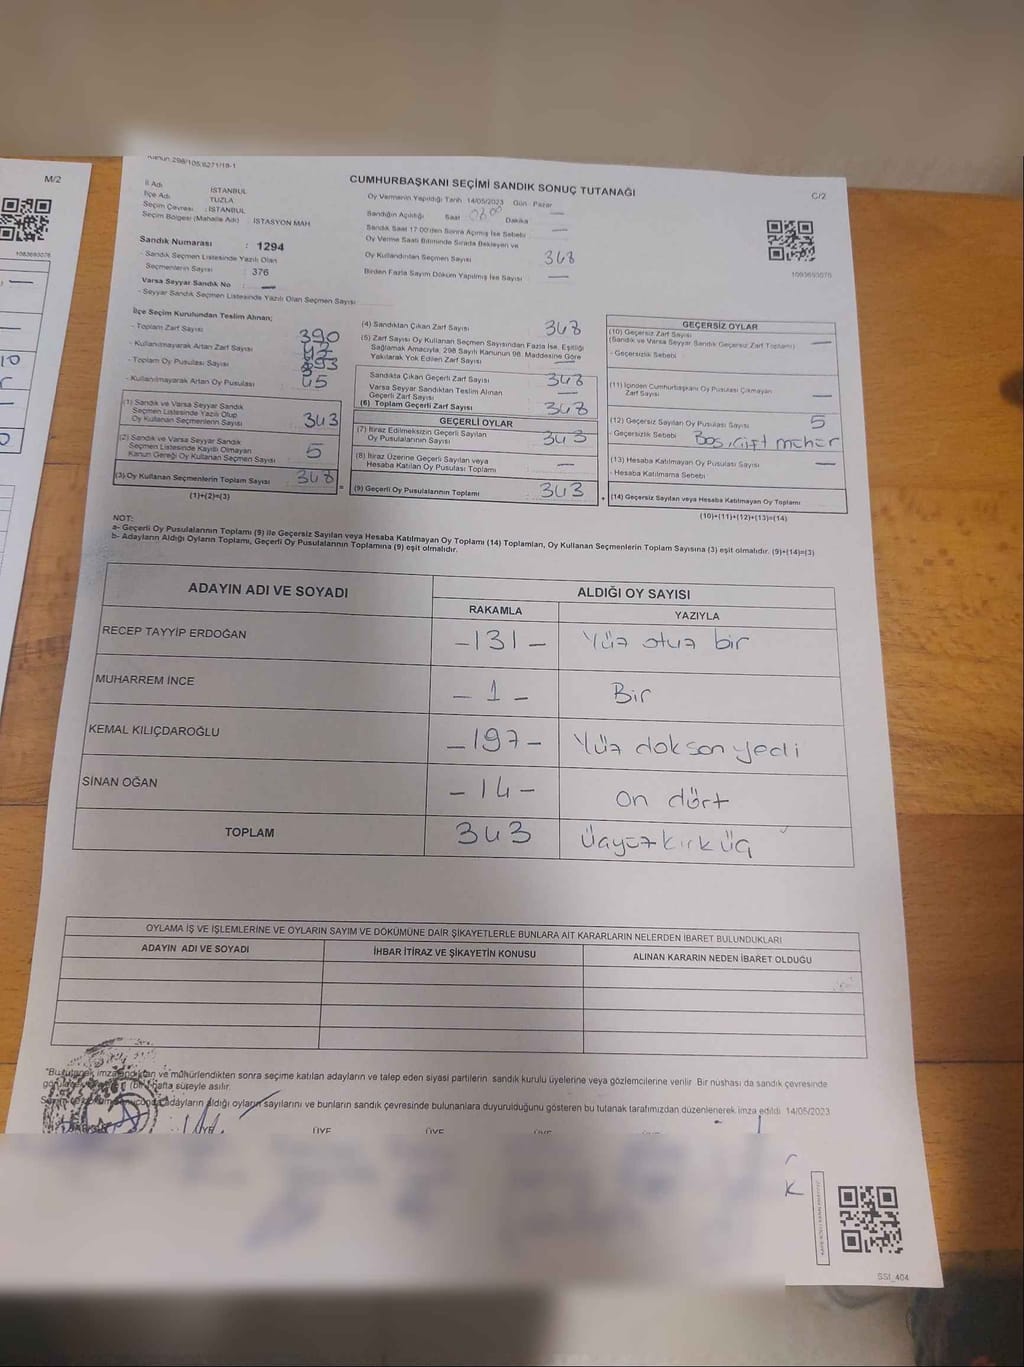 M/2
1083693076
Kanun 298/105;6271/19-1
CUMHURBAŞKANI SEÇİMİ SANDIK SONUÇ TUTANAĞI
C/2
İl Adı : İSTANBUL
İlçe Adı TUZLA
Seçim Çevresi : İSTANBUL
Seçim Bölgesi (Mahalle Adı) : İSTASYON MAH
Sandık Numarası : 1294
- Sandık Seçmen Listesinde Yazılı Olan
Seçmenlerin Sayısı : 376
Varsa Seyyar Sandık No : —
- Seyyar Sandık Seçmen Listesinde Yazılı Olan Seçmen Sayısı
Oy Vermenin Yapıldığı Tarih 14/05/2023 Gün : Pazar
Sandığın Açıldığı Saat 08:00 Dakika —
Sandık Saat 17:00'den Sonra Açılmış İse Sebebi —
Oy Verme Saati Bitiminde Sırada Bekleyen ve
Oy Kullandırılan Seçmen Sayısı 348
Birden Fazla Sayım Döküm Yapılmış İse Sayısı —
1093693076
İlçe Seçim Kurulundan Teslim Alınan;
- Toplam Zarf Sayısı 390
- Kullanılmayarak Artan Zarf Sayısı 42
- Toplam Oy Pusulası Sayısı 393
- Kullanılmayarak Artan Oy Pusulası 45
(1) Sandık ve Varsa Seyyar Sandık
Seçmen Listesinde Yazılı Olup
Oy Kullanan Seçmenlerin Sayısı 343
(2) Sandık ve Varsa Seyyar Sandık
Seçmen Listesinde Kayıtlı Olmayan
Kanun Gereği Oy Kullanan Seçmen Sayısı 5
(3) Oy Kullanan Seçmenlerin Toplam Sayısı 348
(1)+(2)=(3)
=
(4) Sandıktan Çıkan Zarf Sayısı 348
(5) Zarf Sayısı Oy Kullanan Seçmen Sayısından Fazla İse, Eşitliği
Sağlamak Amacıyla, 298 Sayılı Kanunun 98. Maddesine Göre
Yakılarak Yok Edilen Zarf Sayısı —
Sandıkta Çıkan Geçerli Zarf Sayısı 348
Varsa Seyyar Sandıktan Teslim Alınan
Geçerli Zarf Sayısı —
(6) Toplam Geçerli Zarf Sayısı 348
GEÇERLİ OYLAR
(7) İtiraz Edilmeksizin Geçerli Sayılan
Oy Pusulalarının Sayısı 343
(8) İtiraz Üzerine Geçerli Sayılan veya
Hesaba Katılan Oy Pusulası Toplamı —
(9) Geçerli Oy Pusulalarının Toplamı 343
+
GEÇERSİZ OYLAR
(10) Geçersiz Zarf Sayısı
(Sandık ve Varsa Seyyar Sandık Geçersiz Zarf Toplamı) —
- Geçersizlik Sebebi
(11) İçinden Cumhurbaşkanı Oy Pusulası Çıkmayan
Zarf Sayısı —
(12) Geçersiz Sayılan Oy Pusulası Sayısı 5
- Geçersizlik Sebebi Boş, Çift mühür
(13) Hesaba Katılmayan Oy Pusulası Sayısı —
- Hesaba Katılmama Sebebi
(14) Geçersiz Sayılan veya Hesaba Katılmayan Oy Toplamı
(10)+(11)+(12)+(13)=(14)
NOT:
a- Geçerli Oy Pusulalarının Toplamı (9) ile Geçersiz Sayılan veya Hesaba Katılmayan Oy Toplamı (14) Toplamları, Oy Kullanan Seçmenlerin Toplam Sayısına (3) eşit olmalıdır. (9)+(14)=(3)
b- Adayların Aldığı Oyların Toplamı, Geçerli Oy Pusulalarının Toplamına (9) eşit olmalıdır.
ADAYIN ADI VE SOYADI
ALDIĞI OY SAYISI
RAKAMLA YAZIYLA
RECEP TAYYİP ERDOĞAN -131- Yüz otuz bir
MUHARREM İNCE -1- Bir
KEMAL KILIÇDAROĞLU -197- Yüz doksan yedi
SİNAN OĞAN -14- on dört
TOPLAM 343 Üçyüz kırk üç
OYLAMA İŞ VE İŞLEMLERİNE VE OYLARIN SAYIM VE DÖKÜMÜNE DAİR ŞİKAYETLERLE BUNLARA AİT KARARLARIN NELERDEN İBARET BULUNDUKLARI
ADAYIN ADI VE SOYADI İHBAR İTİRAZ VE ŞİKAYETİN KONUSU ALINAN KARARIN NEDEN İBARET OLDUĞU
"Bu tutanak imzalandıktan ve mühürlendikten sonra seçime katılan adayların ve talep eden siyasi partilerin sandık kurulu üyelerine veya gözlemcilerine verilir. Bir nüshası da sandık çevresinde
(bir) hafta süreyle asılır.
adayların aldığı oyların sayılarını ve bunların sandık çevresinde bulunanlara duyurulduğunu gösteren bu tutanak tarafımızdan düzenlenerek imza edildi. 14/05/2023
ÜYE ÜYE ÜYE ÜYE
SSİ_404